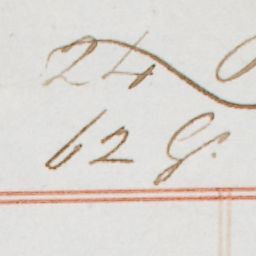 24
62 G.